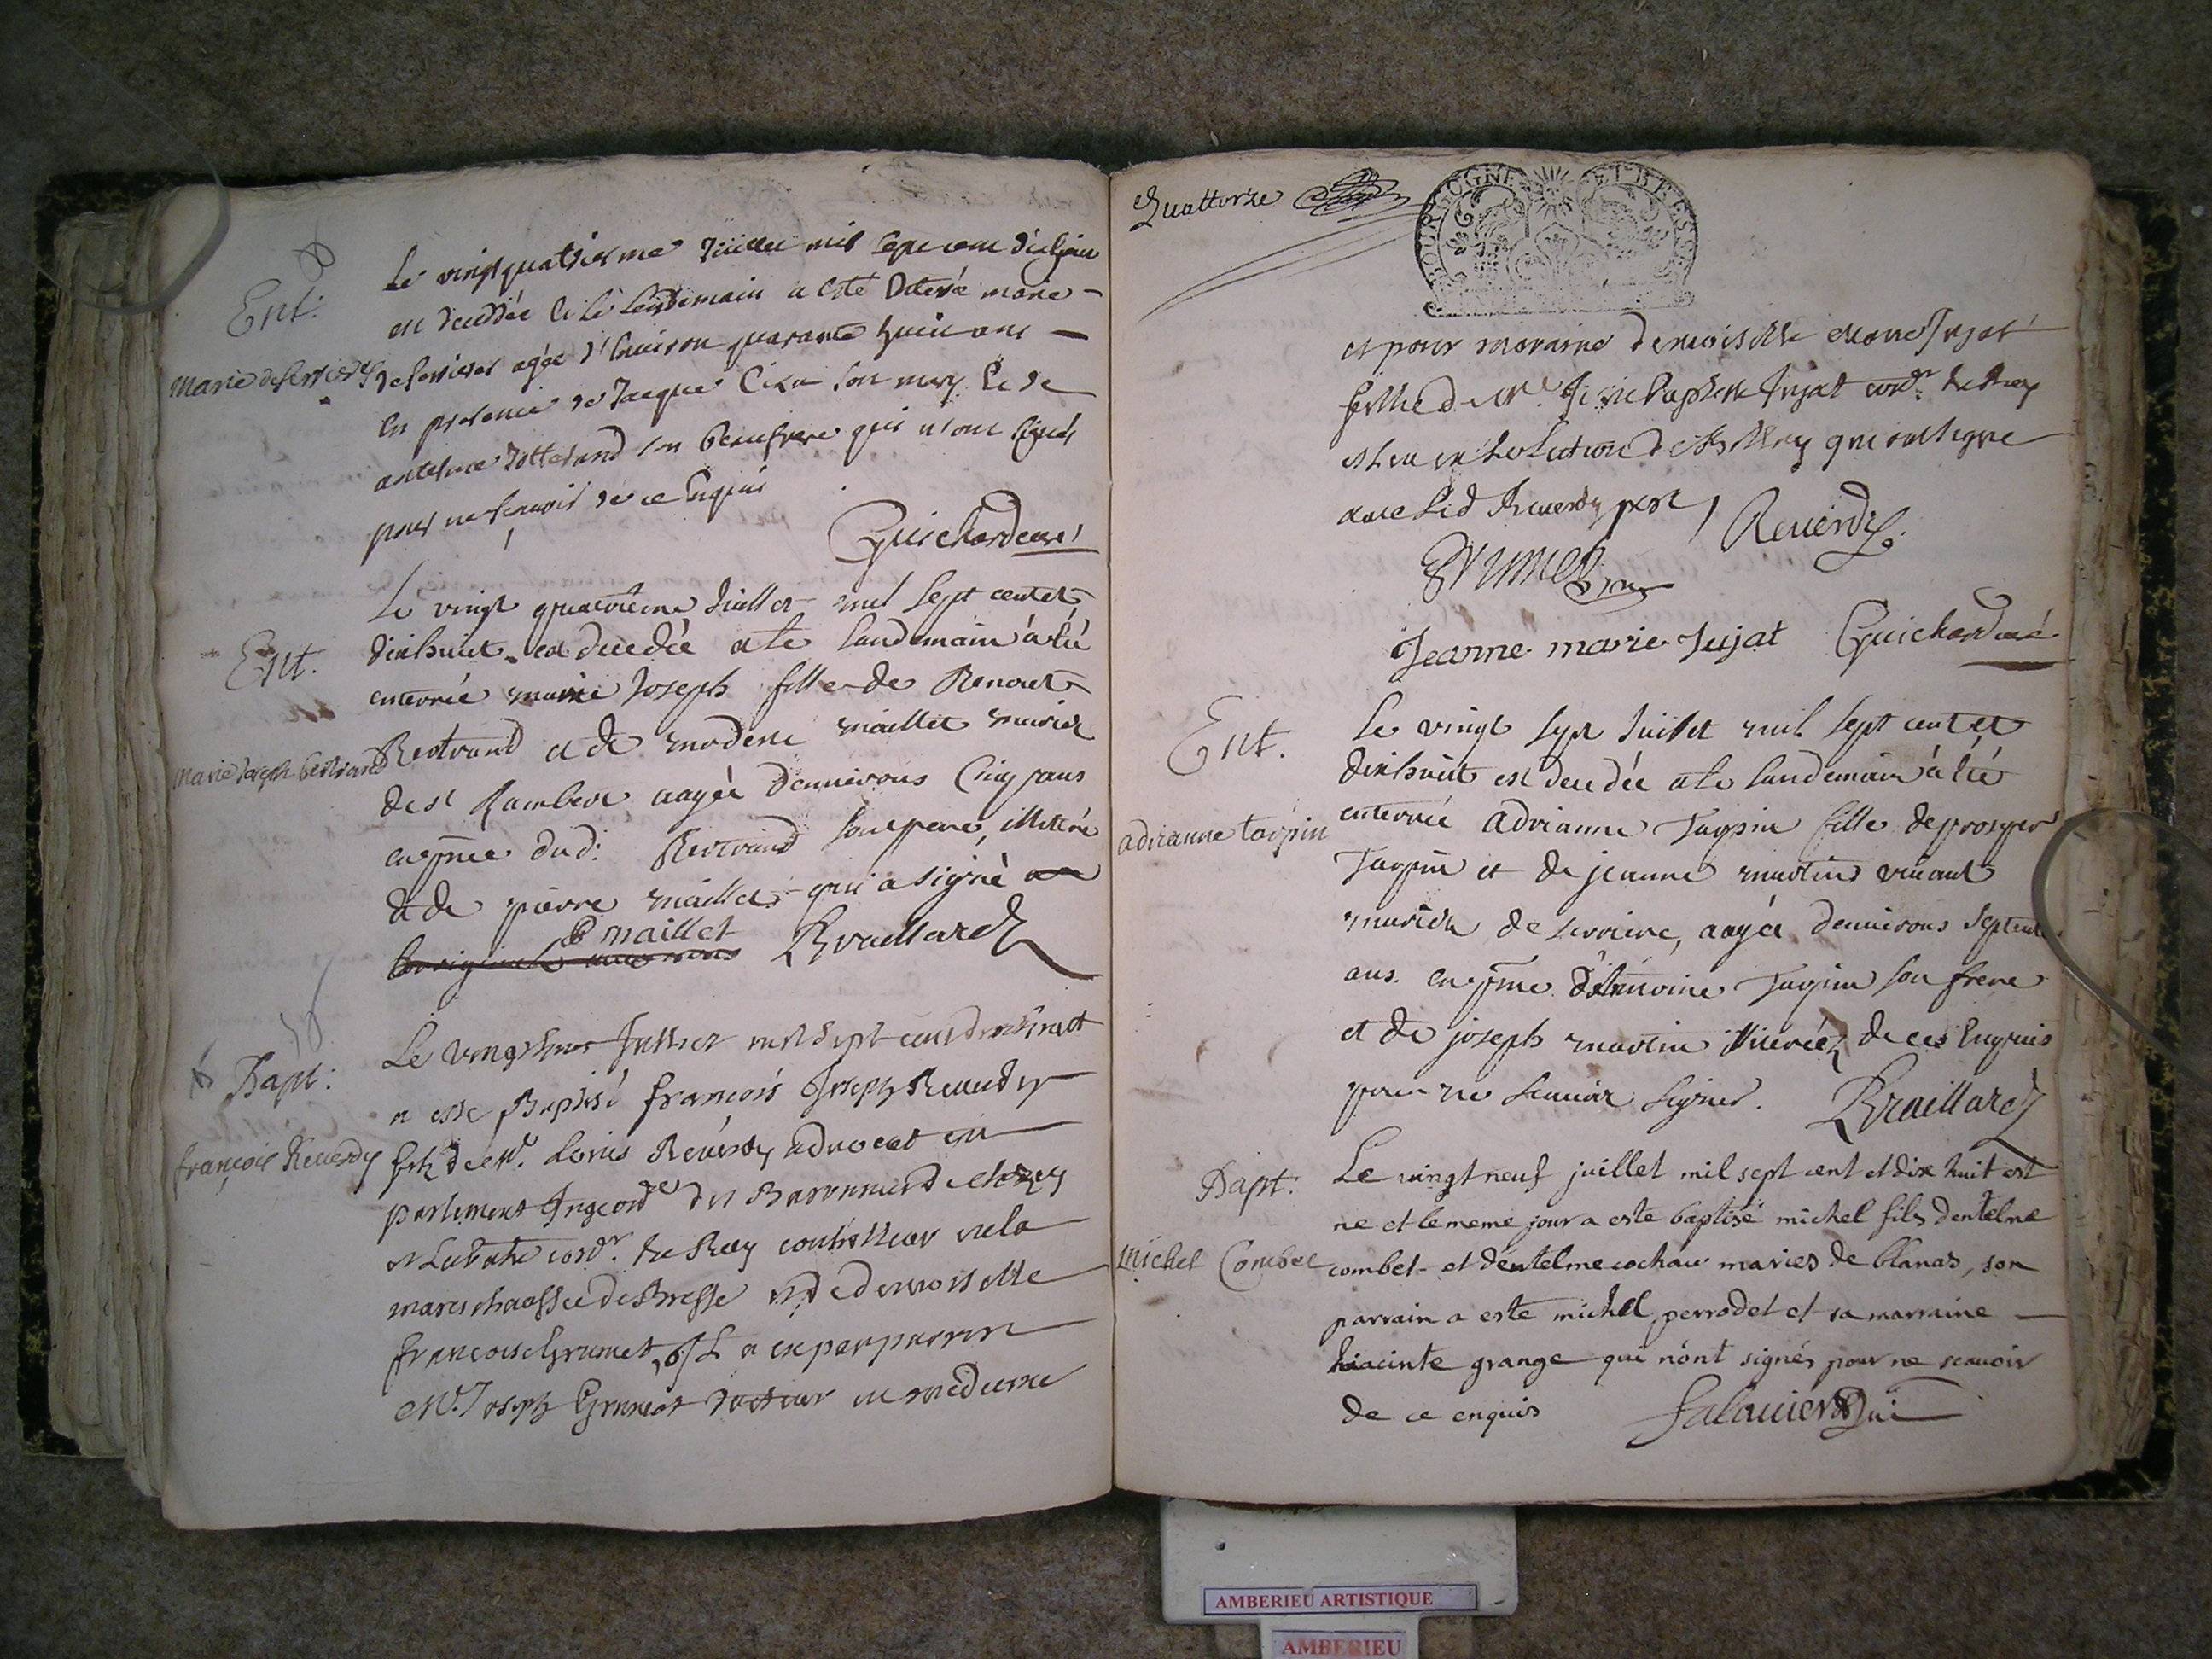 Ent:
marie deserrieres
Le vingt quatriesme Juillet mil sept cent
est decedée et le lendemain a esté enterré marie
agée d'environ quarante huict ans
en presence de Jacque son mary et de
antelme son beaufrere qui n'ont signé
pour ne scavoir de ce enquis
Guichard curé
Ent.
marie Joseph bertrand
Le vingt quatrième Juillet mil sept cent et
dixhuict est decedée a le landemain a été
enterrée marie Joseph fille de Renout
Bertrand et de maillet mariez
de st Rambert aagée denuirons Cinq jans
en pnce dud: Bertrand son pere, illiteré
et de pierre maillet qui a signé
P maillet
Braillard
Bapt:
françois Reuerdy
Le Juillet mil sept cent dix huict
a esté Baptisé françois Joseph Reuerdy
fils de Mr. Louis Reuerdy aduocat en
parlement Juge des
du Roy controlleur en la
mareschaussée de Bresse et de demoiselle
francoise Grumet, a eu par parrin
Mr. Joseph Grumet docteur en medecine
Quattorze
BOURGOGNE ET BRESSE
et pour maraine demoiselle marie Jujat
fille de Mr. Jean Baptiste Jujat du Roy
esleu en qui ont signe
auec led Reuerdy pere
Reuerdy
Grumet
Jeanne marie Jujat Guichard curé
Ent.
adrianne tarpin
Le vingt sept Juillet mil sept cent et
dixhuict est decedée a le landemain a été
enterrée adrianne Tarpin fille de prosper
Tarpin et de jeanne martin viuant
mariez de aagée denuirons septente
ans. en pnce d'antoine Tarpin son frere
et de joseph martin illiterés de ces Enquis
pour ne scauoir signer.
Braillard
Bapt:
michel Combet
Le vingt neuf juillet mil sept cent et dix huit est
ne et le meme jour a este baptisé michel fils dentelme
combet et dentelme cochaur maries de blanas, son
parrain a este michel perrodet et sa marraine
hiacinte grange qui n'ont signés pour ne scauoir
de ce enquis
AMBERIEU ARTISTIQUE
AMBERIEU